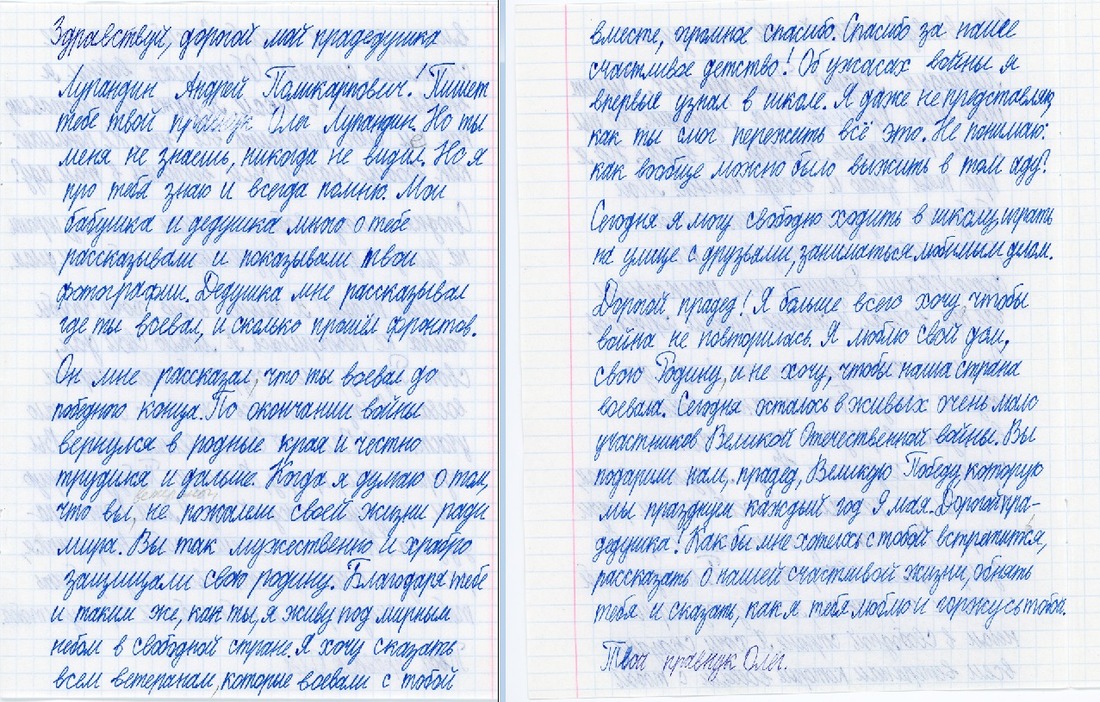 Здравствуй, дорогой мой прадедушка
Лупандин Андрей Поликарпович! Пишет
тебе твой правнук Олег Лупандин. Но ты
меня не знаешь, никогда не видел. Но я
про тебя знаю и всегда помню. Мои
бабушка и дедушка много о тебе
рассказывали и показывали твои
фотографии. Дедушка мне рассказывал
где ты воевал, и сколько прошёл фронтов.
Он мне рассказал, что ты воевал до
победного конца. По окончании войны
вернулся в родные края и честно
трудился и дальше. Когда я думаю о том,
что вы, не пожалели своей жизни ради
мира. Вы так мужественно и храбро
защищали свою родину. Благодаря тебе
и таким же, как ты, я живу под мирным
небом в свободной стране. Я хочу сказать
всем ветеранам, которые воевали с тобой
вместе, огромное спасибо. Спасибо за наше
счастливое детство! Об ужасах войны я
впервые узнал в школе. Я даже не представляю,
как ты смог пережить всё это. Не понимаю:
как вообще можно было выжить в том аду?
Сегодня я могу свободно ходить в школу, играть
на улице с друзьями, заниматься любимым делом.
Дорогой прадед! Я больше всего хочу, чтобы
война не повторилась. Я люблю свой дом,
свою Родину, и не хочу, чтобы наша страна
воевала. Сегодня осталось в живых очень мало
участников Великой Отечественной войны. Вы
подарили нам, прадед, Великую Победу, которую
мы празднуем каждый год 9 мая. Дорогой пра-
дедушка! Как бы мне хотелось с тобой встретится,
рассказать о нашей счастливой жизни, обнять
тебя и сказать, как я тебя люблю и горжусь тобой.
Твой правнук Олег.